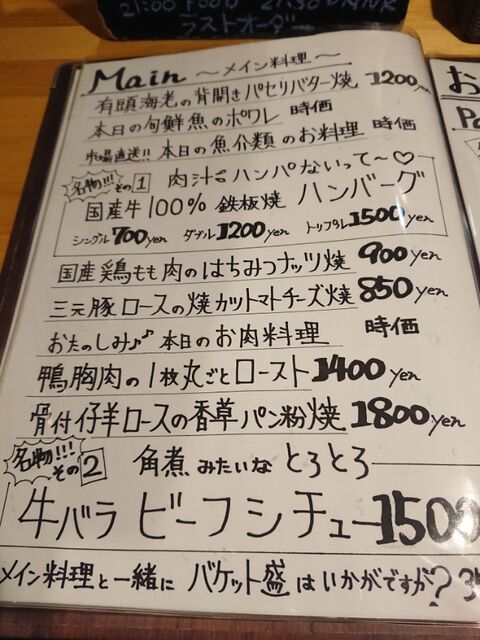 21:00 FOOD 21:30 DRINK
ラストオーダー
Main ～メイン料理～
有頭海老の背開きパセリバター焼 1200yen
本日の旬鮮魚のポワレ 時価
市場直送!! 本日の魚介類のお料理 時価
名物!!! その1 肉汁がハンパないって～♡
国産牛100% 鉄板焼 ハンバーグ
シングル700yen ダブル1200yen トリプル1500yen
国産鶏もも肉のはちみつナッツ焼 900yen
三元豚ロースの焼カットマトチーズ焼 850yen
おたのしみ♪♪ 本日のお肉料理 時価
鴨胸肉の1枚丸ごとロースト 1400yen
骨付仔羊ロースの香草パン粉焼 1800yen
名物!!! その2 角煮みたいなとろとろ
牛バラ ビーフシチュー 1500
メイン料理と一緒に バケット盛はいかがですが?
お